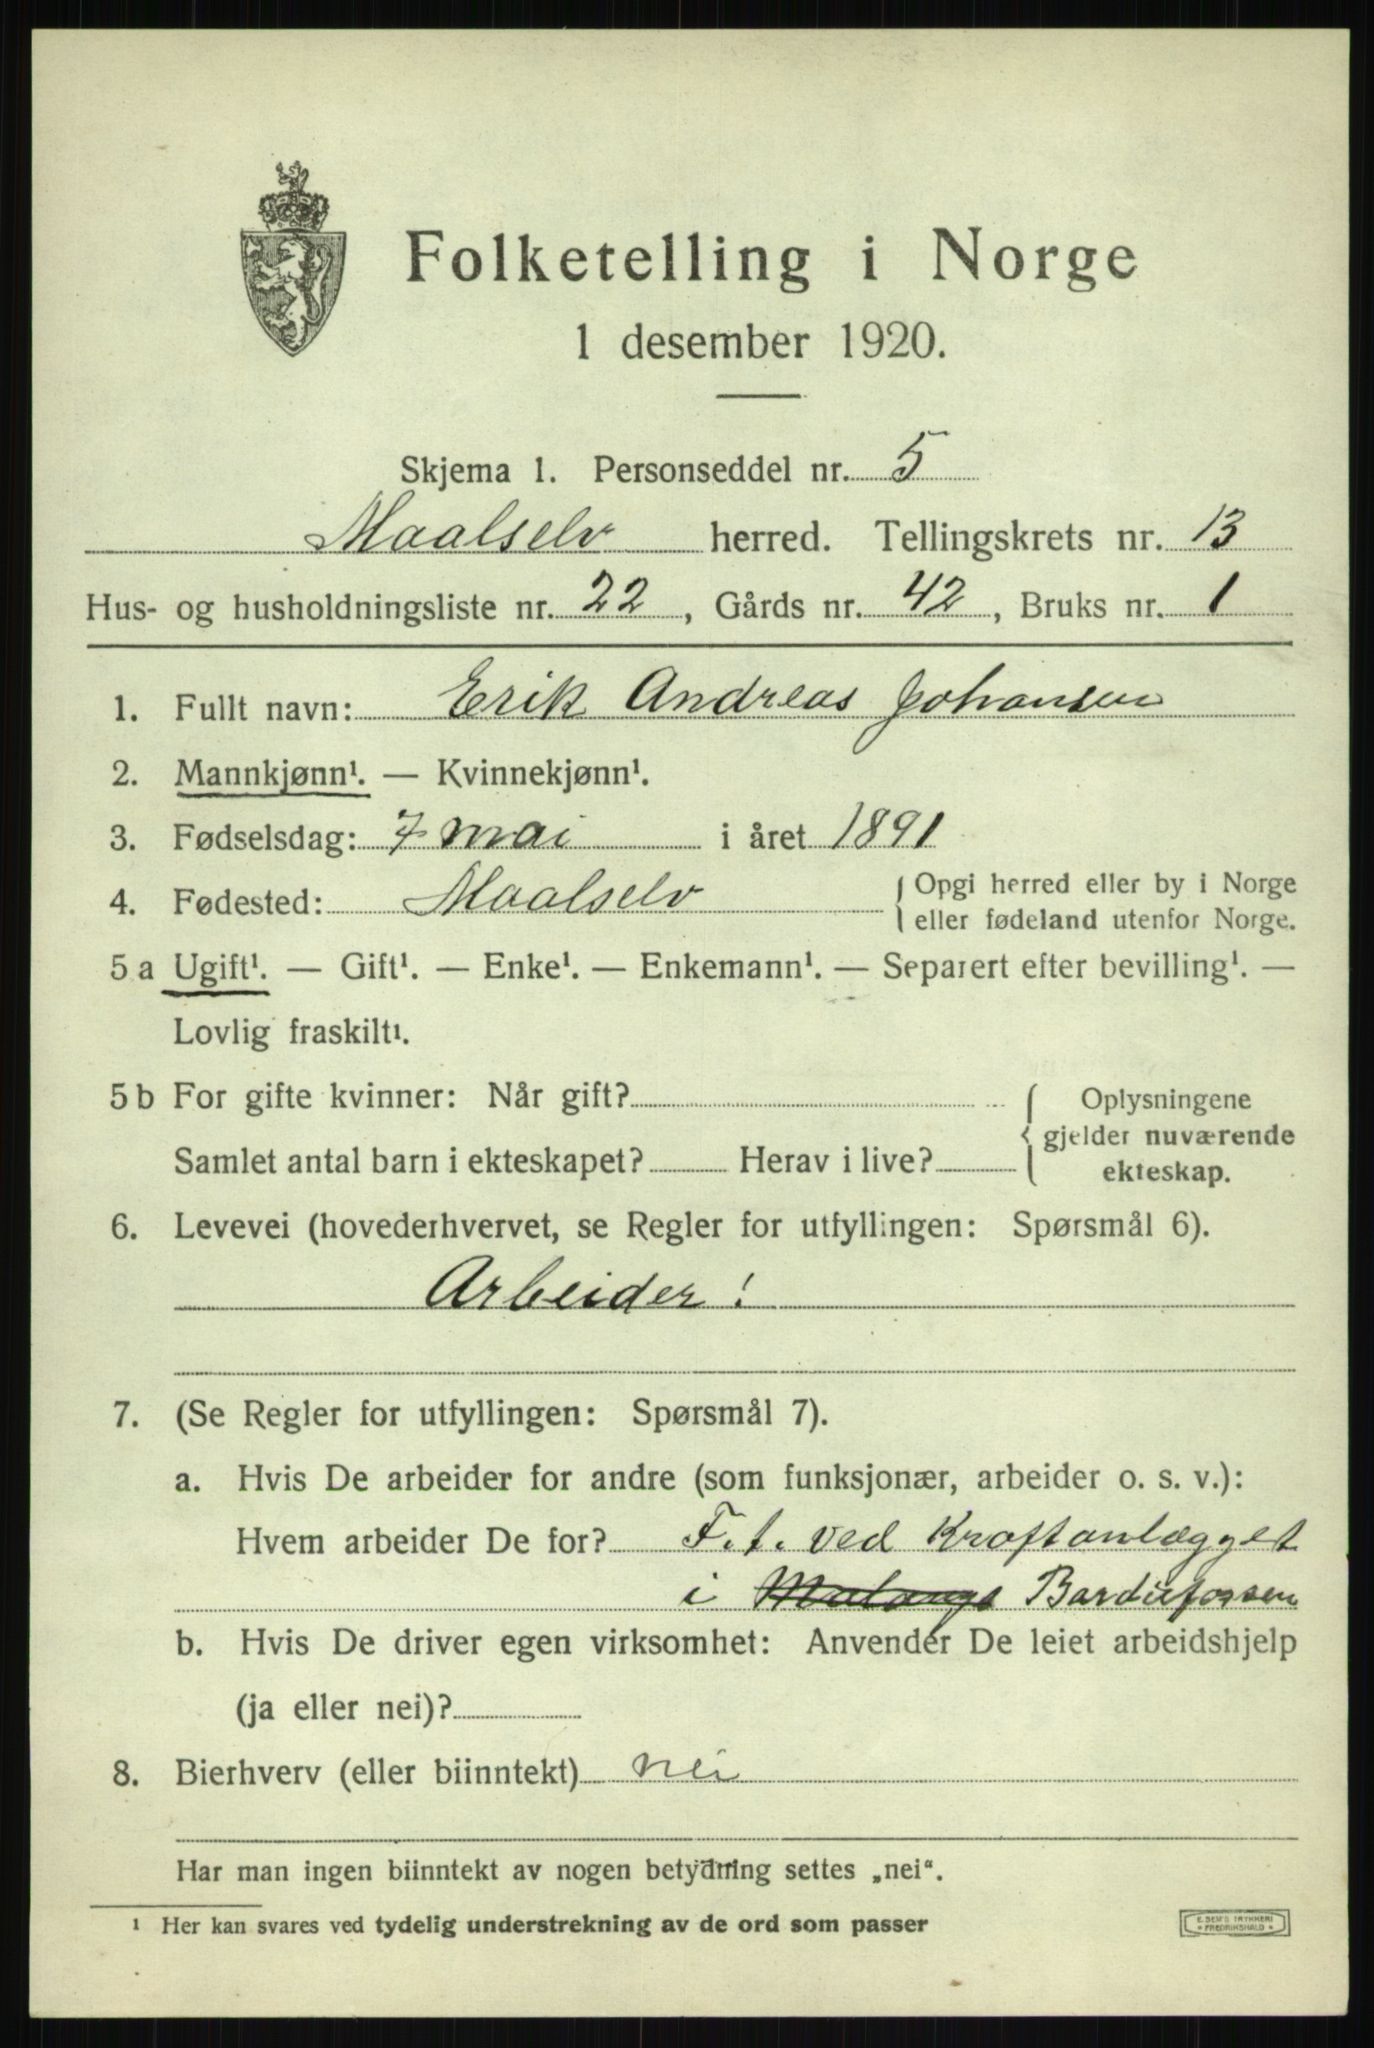 Folketelling i Norge
1 desember 1920.
Skjema 1. Personseddel nr. 5
Maalselv herred. Tellingskrets nr. 13
Hus- og husholdningsliste nr. 22, Gårds nr. 42, Bruks nr. 1
1. Fullt navn: Erik Andreas Johansen
2. Mannkjønn¹. — Kvinnekjønn¹.
3. Fødselsdag: 7 mai i året 1891
4. Fødested: Maalselv { Opgi herred eller by i Norge
eller fødeland utenfor Norge.
5 a Ugift¹. — Gift¹. — Enke¹. — Enkemann¹. — Separert efter bevilling¹. —
Lovlig fraskilt¹.
5 b For gifte kvinner: Når gift? { Oplysningene
gjelder nuværende
Samlet antal barn i ekteskapet? Herav i live? ekteskap.
6. Levevei (hovederhvervet, se Regler for utfyllingen: Spørsmål 6).
Arbeider !
7. (Se Regler for utfyllingen: Spørsmål 7).
a. Hvis De arbeider for andre (som funksjonær, arbeider o. s. v.):
Hvem arbeider De for? F. t. ved Kraftanlægget
i Malangs Bardufossen
b. Hvis De driver egen virksomhet: Anvender De leiet arbeidshjelp
(ja eller nei)?
8. Bierhverv (eller biinntekt) nei
Har man ingen biinntekt av nogen betydning settes „nei“.
¹ Her kan svares ved tydelig understrekning av de ord som passer
E. SEM'S TRYKKERI
* FREDRIKSHALD *